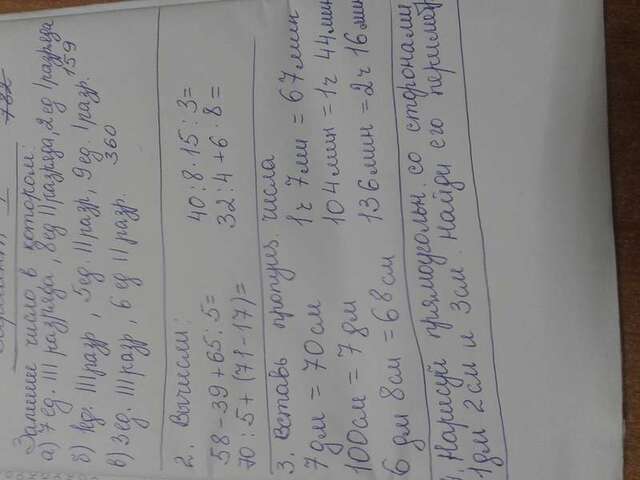 782
Запиши число в котором:
а) 7 ед. III разряда, 8 ед II разряда, 2 ед I разряда
б) 1 ед. III разр, 5 ед. II разр, 9 ед. I разр. 159
в) 3 ед. III разр, 6 ед II разр. 360
2. Вычисли:
58-39+65:5= 40:8·15:3=
70:5+(71-17)= 32:4+6·8=
3. Вставь пропущ. числа
7 дм = 70 см 1 ч 7 мин = 67 мин
100 см = 7 дм 104 мин = 1 ч 44 мин
6 дм 8 см = 68 см 136 мин = 2 ч 16 мин
Нарисуй прямоугольн. со сторонами
1 дм 2 см и 3 см. Найди его периметр